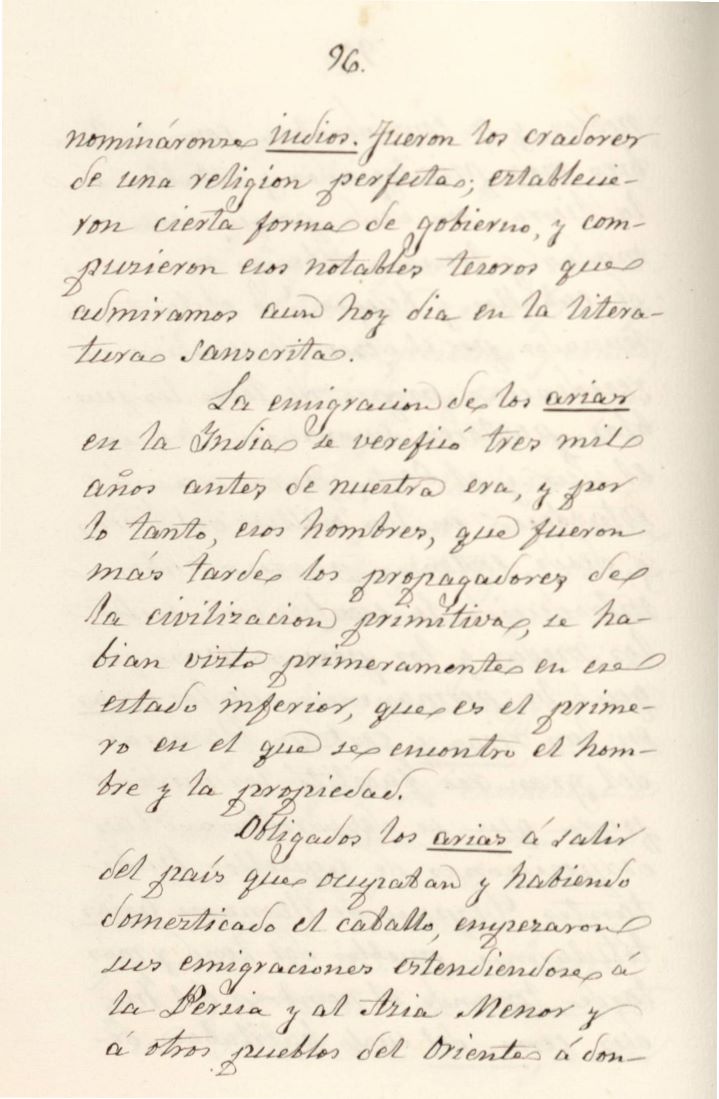 96.
nomináronse indios. Fueron los cradores
de una religion perfecta; establecie-
ron cierta forma de gobierno, y com-
pusieron esos notables tesoros que
admiramos aun hoy dia en la litera-
tura Sanscrita.
La emigracion de los arias
en la India se vereficó tres mil
años antes de nuestra era, y por
lo tanto, esos hombres, que fueron
más tarde los propagadores de
la civilizacion primitiva, se ha-
bian visto primeramente en ese
estado inferior, que es el prime-
ro en el que se encontro el hom-
bre y la propiedad.
Obligados los arias á salir
del país que ocupaban y habiendo
domesticado el caballo, empezaron
sus emigraciones estendiendose á
la Persia y al Asia Menor y
á otros pueblos del Oriente á don-